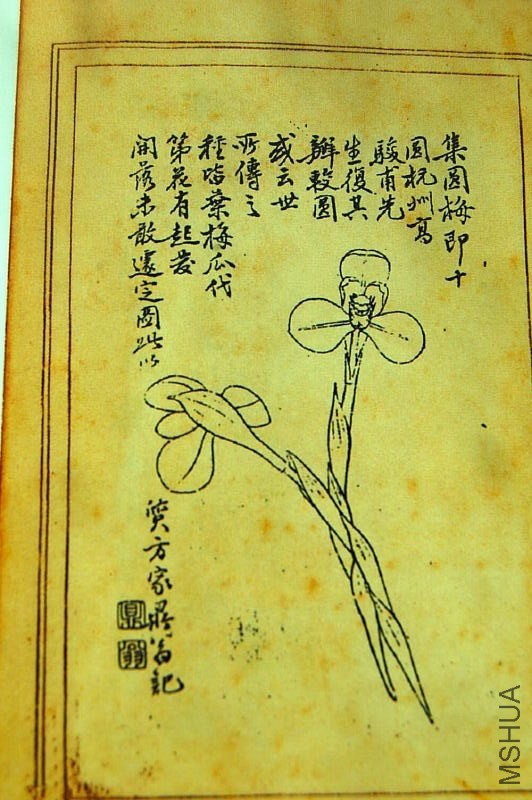 集圓梅即十
圓杭州高
駿甫先
生復其
瓣較圓
或云世
所傳之
種皆葉梅瓜代
第花有起發
開落未敢遽定圖此以
質方家翁記
MSHUA